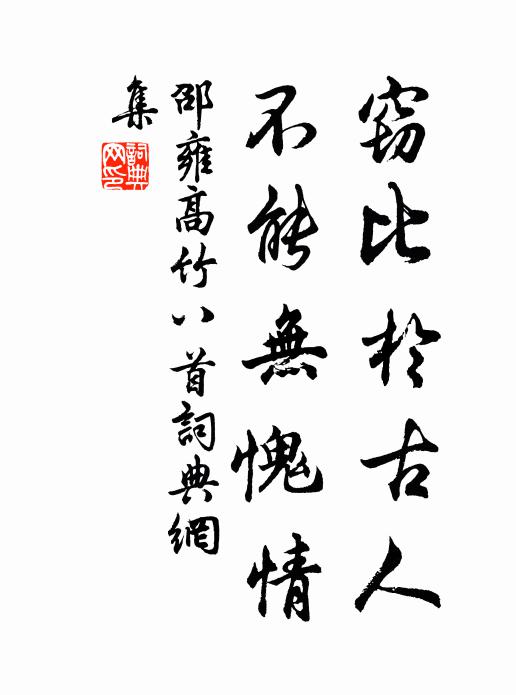 窃比於古人
不能無愧情
邵雍高竹八首詞典網
集
詞典
网印